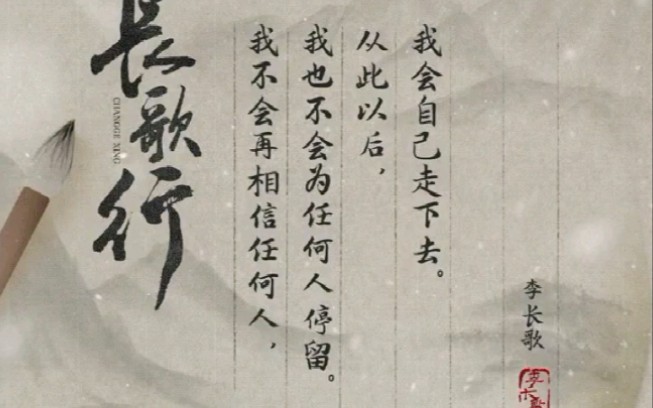 長歌行
CHANGGE XING
我不会再相信任何人，
我也不会为任何人停留。
从此以后，
我会自己走下去。
李长歌